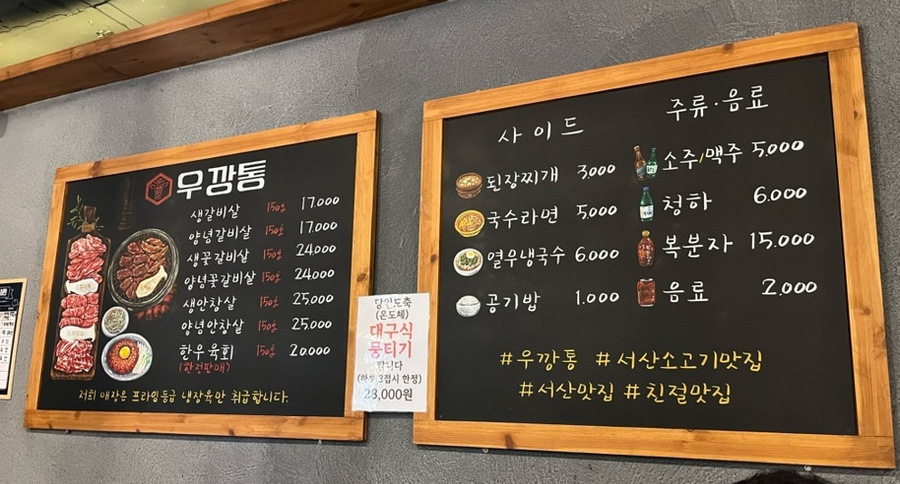 우깡통
생갈비살 150g 17.000
양념갈비살 150g 17.000
생꽃갈비살 150g 24.000
양념꽃갈비살 150g 24.000
생안창살 150g 25.000
양념안창살 150g 25.000
한우육회 150g 20.000
(한정판매)
저희 매장은 프라임등급 냉장육만 취급합니다.
당일도축
(온도체)
대구식
뭉티기
팝니다
(하루 3접시 한정)
28,000원
사이드
된장찌개 3.000
국수라면 5.000
열무냉국수 6.000
공기밥 1.000
주류·음료
소주/맥주 5.000
청하 6.000
복분자 15.000
음료 2.000
#우깡통 #서산소고기맛집
#서산맛집 #친절맛집